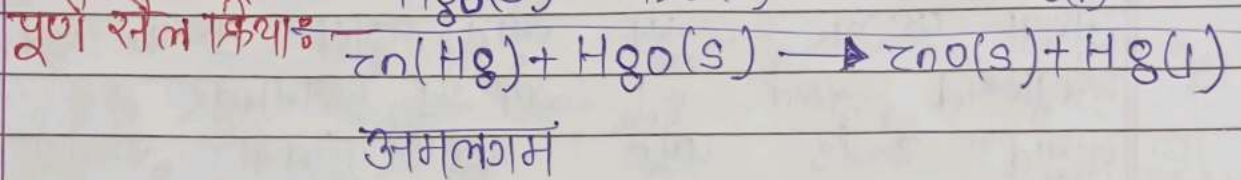 पूर्ण सैल क्रिया:-
Zn(Hg) + HgO(s) → ZnO(s) + Hg(l)
अमलगम